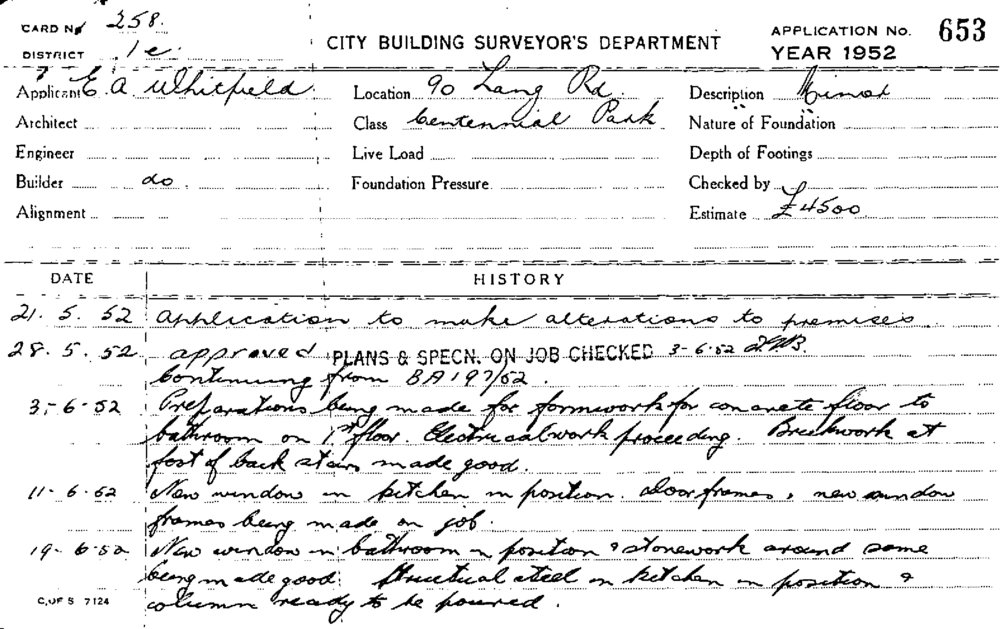 CARD No 258.
DISTRICT 1e.
CITY BUILDING SURVEYOR'S DEPARTMENT
APPLICATION No. 653
YEAR 1952
Applicant E. A Whitfield. Location 90 Lang Rd. Description Minor
Architect Class Centennial Park Nature of Foundation
Engineer Live Load Depth of Footings
Builder do. Foundation Pressure Checked by
Alignment Estimate £4500
DATE HISTORY
21. 5. 52 Application to make alterations to premises
28. 5. 52 approved PLANS & SPECN. ON JOB CHECKED 3-6-52
Continuing from BA197/52.
3-6-52 Preparations being made for formwork for concrete floor to
bathroom on 1st floor. Electrical work proceeding. Brickwork at
foot of back stairs made good.
11-6-52 New window in kitchen in position. door frames & new window
frames being made on job.
19-6-52 New window in bathroom in position & stonework around same
being made good. Structural steel in kitchen in position &
C. OF S 7124 column ready to be poured.